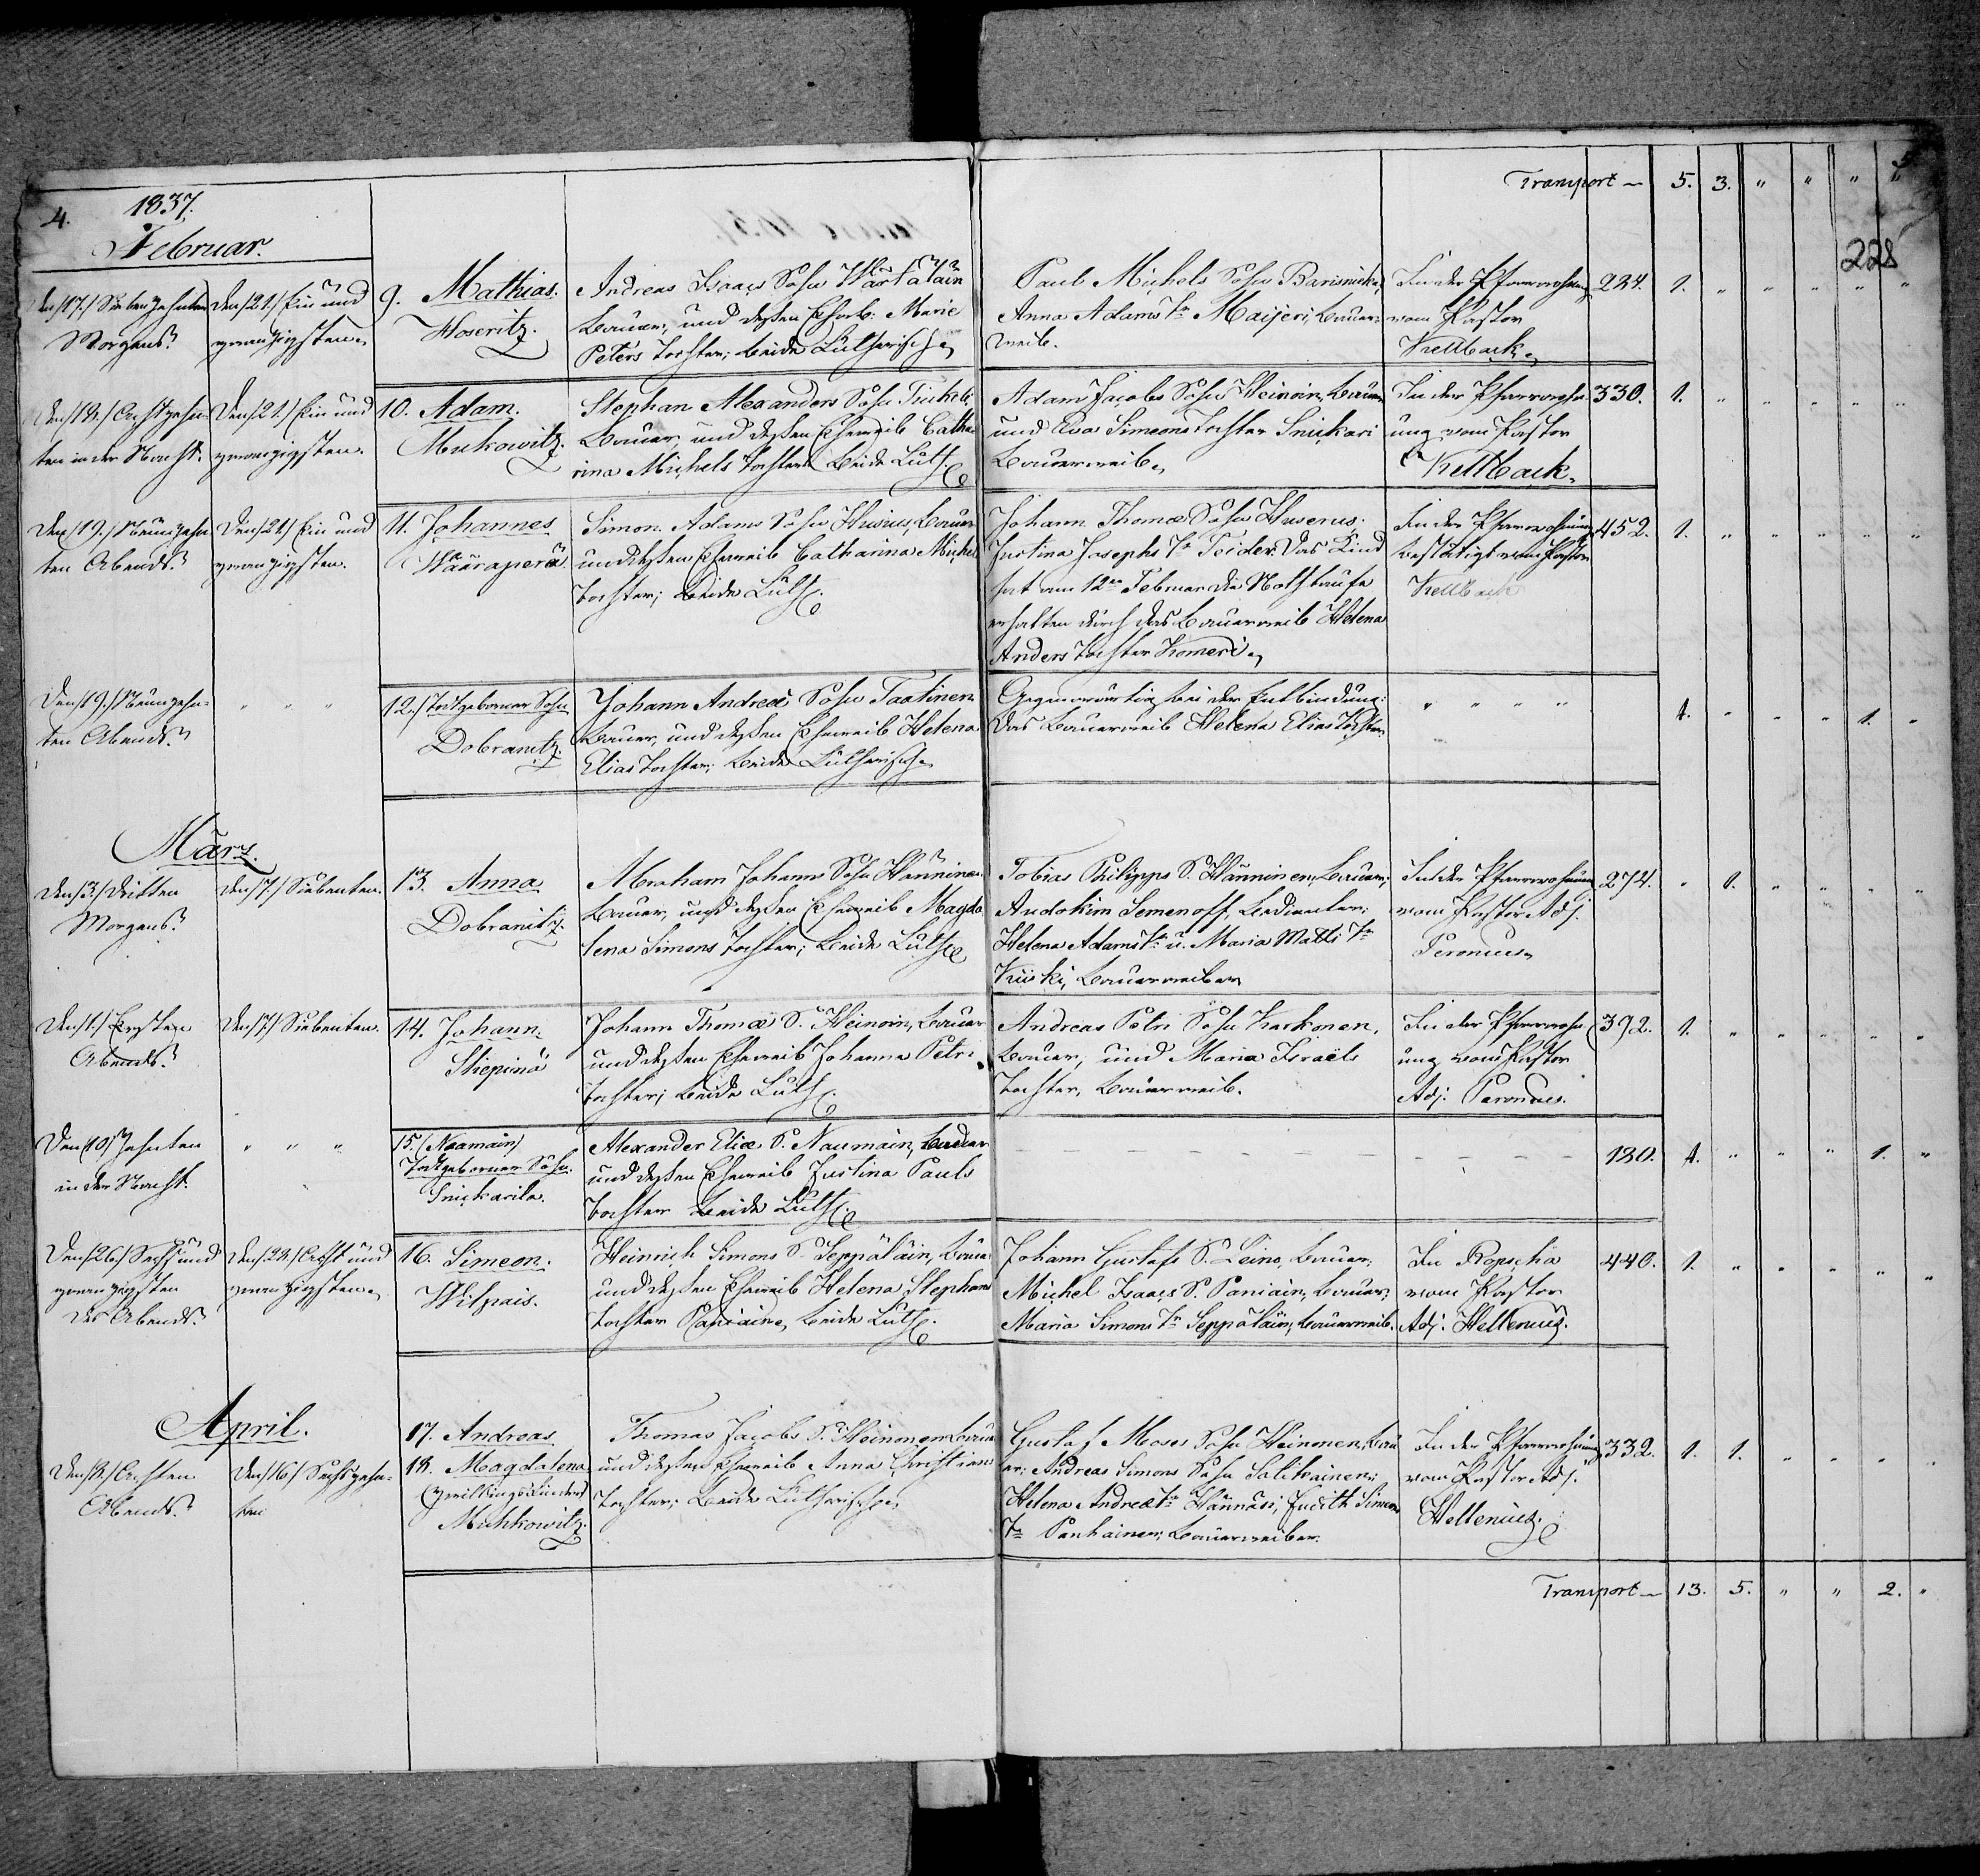 4. 1837.
Februar.
Transport — 5. 3. " " " "
5.
228
den 17./ Siebenzehnten
Morgens.
den 21./ Ein und
zwanzigsten.
9. Mathias.
Hoseritz.
Andreas Isaacs Sohn
Bauer, und deßen Eheweib: Marie
Peters Tochter; beide Lutherisch.
Paul Michels Sohn
Anna Adams Tr Maijeri, Bauer-
weib.
In der Pfarrwohnung
vom Pastor
Kellback.
224. 1. " " " " "
Den 18./ Achtzehn-
ten in der Nacht.
Den 21./ Ein und
zwanzigsten.
10. Adam.
Mukowitz.
Stephan Alexanders Sohn
Bauer, und deßen Eheweib Catha-
rina Michels Tochter beide Luth.
Adam Jacobs Sohn Heinoin, Bauer
und Eva Simeons Tochter Snickari
Bauerweib.
In der Pfarrwohn-
ung vom Pastor
Kellback.
330. 1. " " " " "
Den 19./ Neunzehn-
ten Abends.
Den 21./ Ein und
zwanzigsten.
11. Johannes
Wääräperä.
Simon Adams Sohn Bauer
und deßen Eheweib Catharina Michel
Tochter; beide Luth.
Johann Thomæ Sohn Huserus.
Justina Josephs Tr Teider. Das Kind
hat am 12ten Februar die Nothtaufe
erhalten durch das Bauerweib Helena
Anders Tochter Komeri.
In der Pfarrwohnung
bestätigt vom Pastor
Kellback
452. 1. " " " " "
Den 19./ Neunzehn-
ten Abends.
" " "
12./ Todtgeborner Sohn
Dobranitz.
Johann Andreæ Sohn Taatinen
Bauer, und deßen Eheweib Helena
Elias Tochter; beide Lutherisch.
Gegenwärtig bei der Entbindung:
Das Bauerweib Helena Elias Tochter.
" " " "
1. " " " 1. "
März.
Den 3./ Dritten
Morgens.
den 7./ Siebenten.
13. Anna
Dobranitz.
Abraham Johanns Sohn Hänninen
Bauer, und deßen Eheweib Magda-
lena Simons Tochter; beide Luth.
Tobias Philipps S. Hänninen, Bauer;
Audokim Semenoff, Bedienter;
Helena Adams Tr u. Maria Matts Tr
Kiiski, Bauerweiber
In der Pfarrwohnung
vom Pastor Adj.
Peronius.
274. " 1. " " " "
Den 1./ Ersten
Abends.
Den 7./ Siebenten.
14. Johann.
Skiepinä
Johann Thomæ S. Heinoin, Bauer
und deßen Eheweib Johanna Petri
Tochter; beide Luth.
Andreas Petri Sohn Karkonen,
Bauer, und Maria Israëls
Tochter, Bauerweib.
In der Pfarrwohn-
ung vom Pastor
Adj. Peronius.
392. 1. " " " " "
Den 10./ Zehnten
in der Nacht.
" " "
15. (Naamain)
Todtgeborner Sohn.
Snickarila.
Alexander Eliæ S. Naumain, Bauer
und deßen Eheweib Justina Pauls
Tochter beide Luth.
180. 1. " " " 1. "
Den 26./ Sechs und
zwanzigsten
des Abends.
Den 28./ Acht und
zwanzigsten.
16. Simeon.
Wilpais.
Heinrich Simons S. Seppäläin, Bauer
und deßen Eheweib Helena Stephans
Tochter Paniain, beide Luth.
Johann Gustafs S. Leino, Bauer;
Michel Isaacs S. Paniain, Bauer;
Maria Simons Tr Seppäläin, Bauerweib.
In Ropscha
vom Pastor
Adj. Hellenius.
440. 1. " " " " "
April.
Den 8./ Achten
Abends.
Den 16./ Sechszehn-
ten
17. Andreas
18. Magdalena
(Zwillings Kinder)
Muhkowitz.
Thomas Jacobs S. Heinonen, Bauer
und deßen Eheweib Anna Christians
Tochter; beide Lutherisch.
Gustaf Moses Sohn Heinonen, Bau-
er; Andreas Simons Sohn Salikainen;
Helena Andreæ Tr Hännäsi; Judith Simons
Tr Panhainen; Bauerweiber.
In der Pfarrwohnung
vom Pastor Adj.
Hellenius.
332. 1. 1. " " " "
Transport — 13. 5. " " 2. "